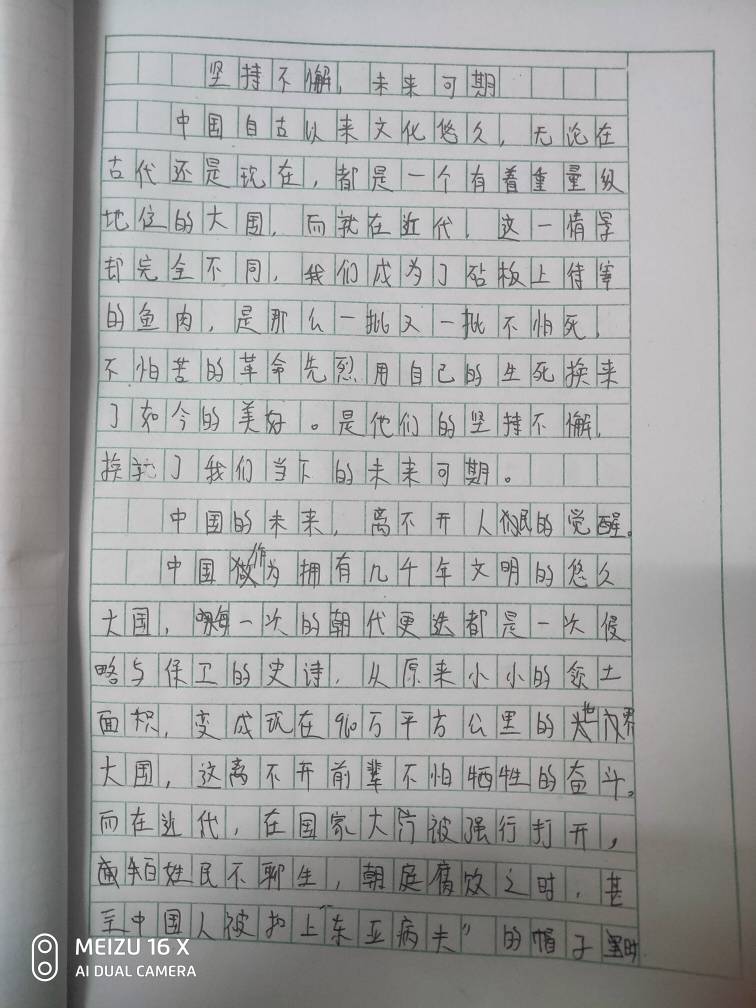 坚持不懈，未来可期
中国自古以来文化悠久，无论在
古代还是现在，都是一个有着重量级
地位的大国，而就在近代，这一情景
却完全不同，我们成为了砧板上待宰
的鱼肉，是那么一批又一批不怕死，
不怕苦的革命先烈用自己的生死换来
了如今的美好。是他们的坚持不懈，
换了我们当下的未来可期。
中国的未来，离不开人民的觉醒。
中国作为拥有几千年文明的悠久
大国，每一次的朝代更迭都是一次侵
略与保卫的史诗，从原来小小的领土
面积，变成现在960万平方公里的世界
大国，这离不开前辈不怕牺牲的奋斗。
而在近代，在国家大门被强行打开，
百姓民不聊生，朝庭腐败之时，甚
至中国人被扣上"东亚病夫"的帽子时
MEIZU 16 X
AI DUAL CAMERA